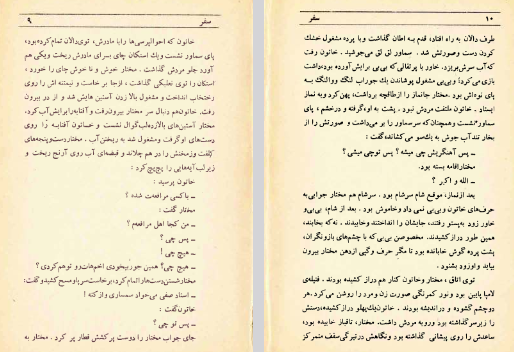 سفر ۹
خاتون که احوالپرسی‌ها را با مادرش، توی دالان تمام کرده بود،
پای سماور نشست و یک استکان چای برای مادرش ریخت و یکی هم
آورد جلو مردش گذاشت. مختار خوش و ناخوش چای را خورد،
استکان را توی نعلبکی گذاشت، از جا برخاست و نیمتنه اش را
رختخواب انداخت و مشغول بالا زدن آستین هایش شد و از در بیرون
رفت. خاتون هم دنبال سر مختار بیرون رفت و آفتابه را برایش آب کرد.
مختار آستین‌های بالازده لب گوال نشست و خاتون آفتابه را روی
دست‌های او گرفت و مشغول شد به ریختن آب. مختار دست و پنجه‌های
کلفت و زمختش را در هم چلاند و قبضه‌ای آب روی آرنج ریخت و
زیر لب آیه‌هایی را پچ پچ کرد:
خاتون پرسید:
ــ با کسی مرافعت شده؟
مختار گفت:
ــ من کجا اهل مرافعه‌م؟
ــ پس چی؟
ــ هیچ چی!
ــ هیچ چی؟ همین جور بیخودی اخم هات و تو هم کردی؟
مختار شستن دست‌ها را تمام کرد، برخاست سر پا و مسح کشید و گفت:
ــ استاد صفی می‌خواد سمساری وا کنه!
خاتون گفت:
ــ پس تو چی؟
جای جواب مختار را دوست پرکشش قطار پر کرد. مختار به
۱۰ سفر
طرف دالان به راه افتاد، قدم به اطاق گذاشت و با پرده مشغول خشک
کردن دست و صورتش شد. سماور لق لق می‌جوشید. خاتون رفت
که آب سرش بریزد. خاور با پرتقالی که بی‌بی برایش آورده بود داشت
بازی می‌کرد و بی‌بی مشغول پوشاندن یک جوراب لنگ و والنگ به
پای نوه‌اش بود. مختار جانماز را از طاقچه برداشت، پهن کرد و به نماز
ایستاد. خاتون ملتفت مردش نبود. پشت به او گرفته و در خشم، پای
سماور نشست و همچنان که سر سماور را بر می‌داشت و صورتش را از
بخار تند آب جوش به یک سو می‌کشاند گفت:
ــ پس آهنگریش چی میشه؟ پس تو چی میشی؟
مختار اقامه بسته بود.
ــ الله و اکبر؟
بعد از نماز، موقع شام سر شام بود. سر شام هم مختار جوابی به
حرف‌های خاتون و بی‌بی نمی‌داد و خاموش بود. بعد از شام، بی‌بی و
خاور زود به پستو رفتند، جایشان را انداختند و خوابیدند. نه که بخوابند،
همین طور دراز کشیدند. مخصوصن بی‌بی که با چشم‌های باز و نگران،
پشت پرده گوش خوابانده بود تا مگر حرف و گپی از دهن مختار بیرون
بیاید و او زود بشنود.
توی اتاق، مختار و خاتون کنار هم دراز کشیده بودند. فتیله‌ی
لامپا پایین بود و نور کمرنگی صورت زن و مرد را روشن می‌کرد. هر
دو چشم گشوده و در اندیشه بودند. خاتون یک پهلو دراز کشیده، دستش
را زیر سر گذاشته بود و رو به مردش داشت. مختار، تاقباز خوابیده بود،
ساعدش را روی پیشانی گذاشته بود و نگاهش در تیرگی سقف متمرکز